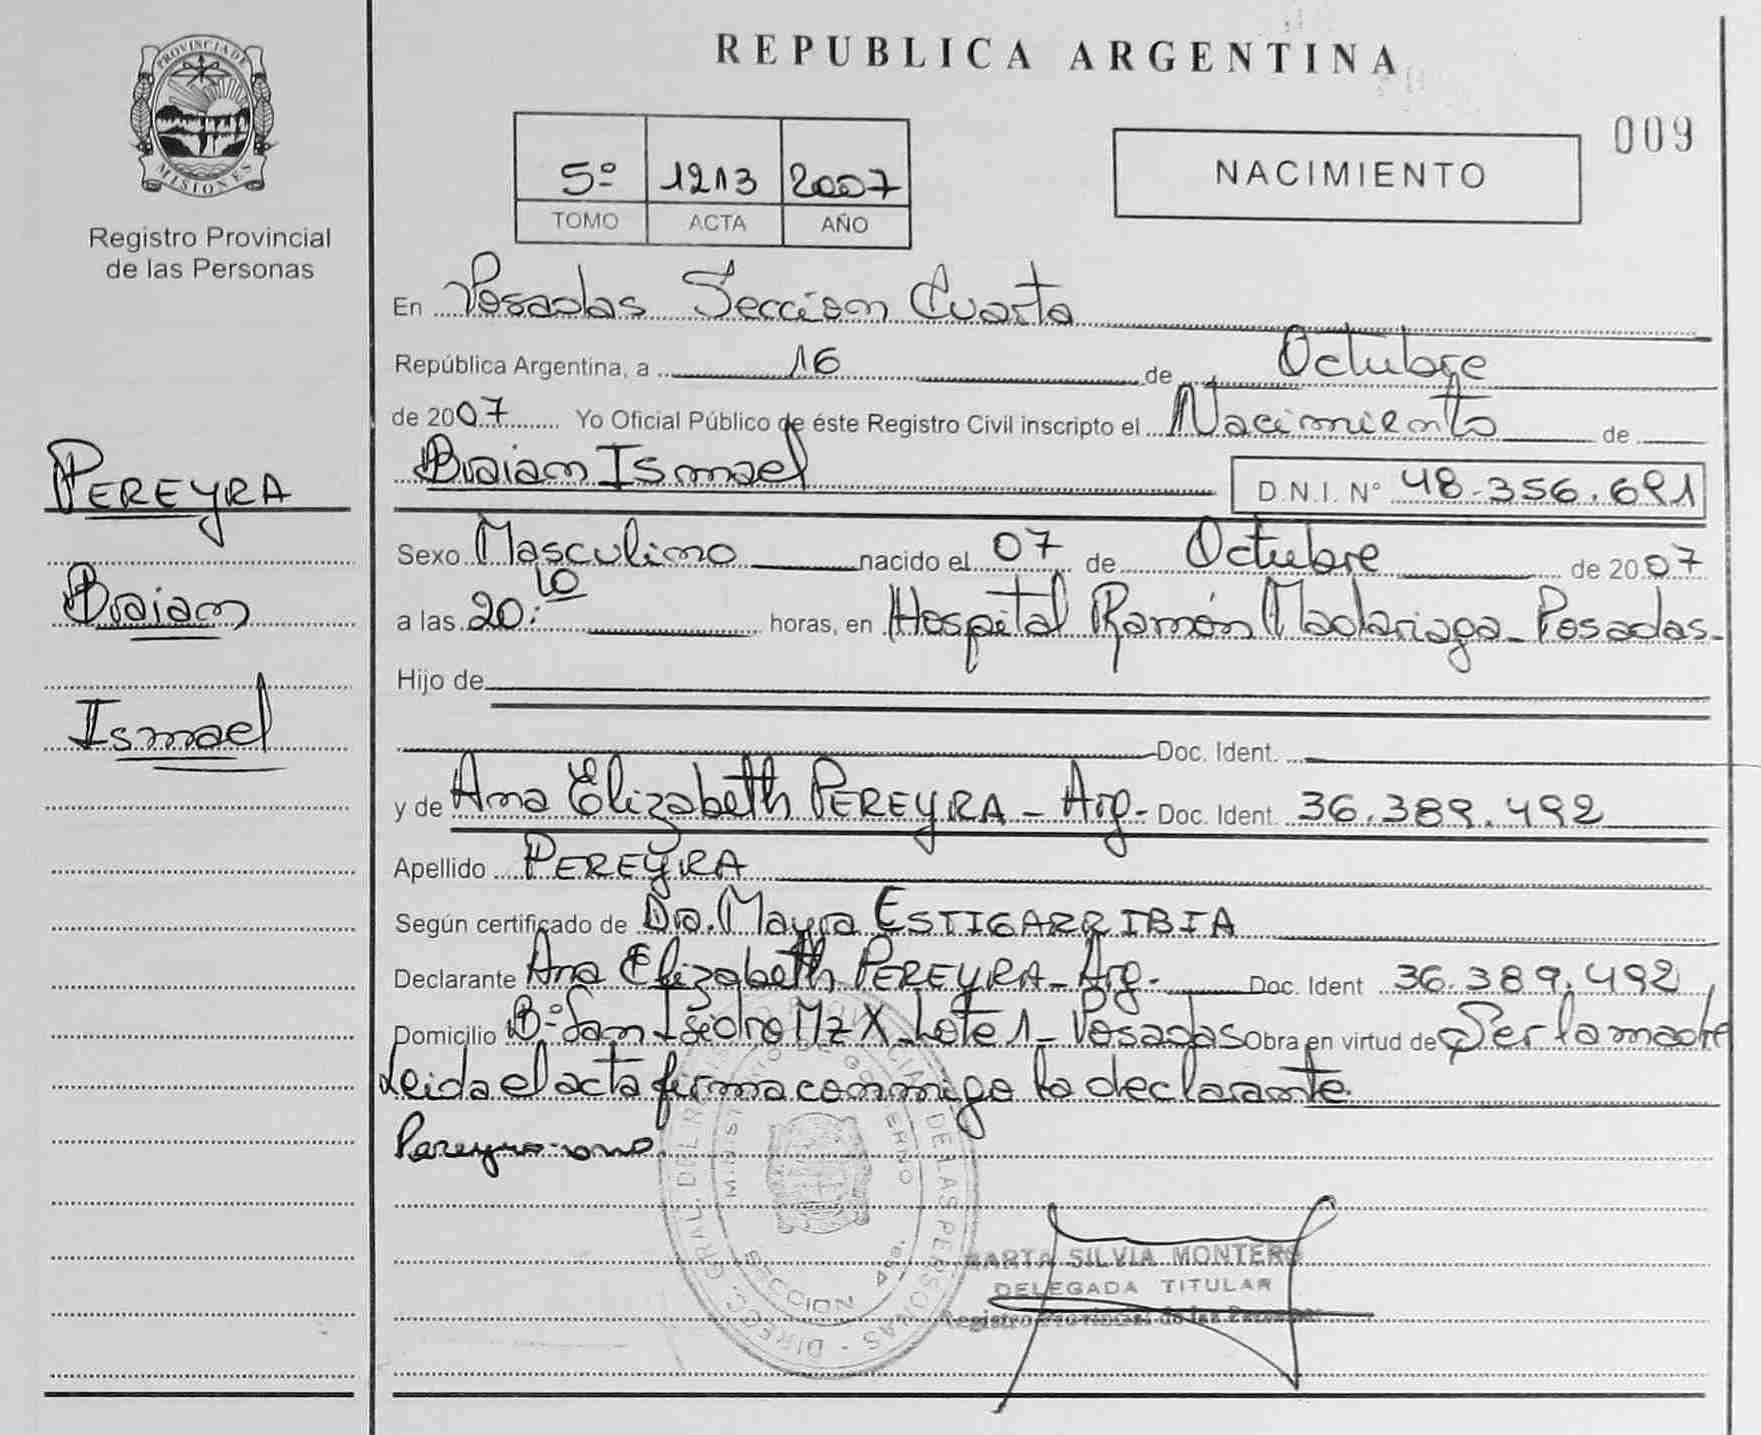 PROVINCIA DE
MISIONES
Registro Provincial
de las Personas
PEREYRA
Braian
Ismael
REPUBLICA ARGENTINA
009
5º 1213 2007
TOMO ACTA AÑO
NACIMIENTO
En Posadas Seccion Cuarta
República Argentina, a 16 de Octubre
de 2007 Yo Oficial Público de éste Registro Civil inscripto el Nacimiento de
Braian Ismael D.N.I. Nº 48.356.691
Sexo Masculino nacido el 07 de Octubre de 2007
a las 20:10 horas, en Hospital Ramón Madariaga - Posadas -
Hijo de
Doc. Ident.
y de Ana Elizabeth PEREYRA - Arg - Doc. Ident. 36.389.492
Apellido PEREYRA
Según certificado de Dra. Mayra ESTIGARRIBIA
Declarante Ana Elizabeth PEREYRA - Arg - Doc. Ident 36.389.492
Domicilio Bº San Isidro Mz X Lote 1 - Posadas Obra en virtud de Ser la madre
Leida el acta firma conmigo la declarante
Pereyra ana
DIRECC. GRAL. DEL DE LAS PERSONAS
SECCION 4ta.
MARTA SILVIA MONTERO
DELEGADA TITULAR
Registro Provincial de las Personas